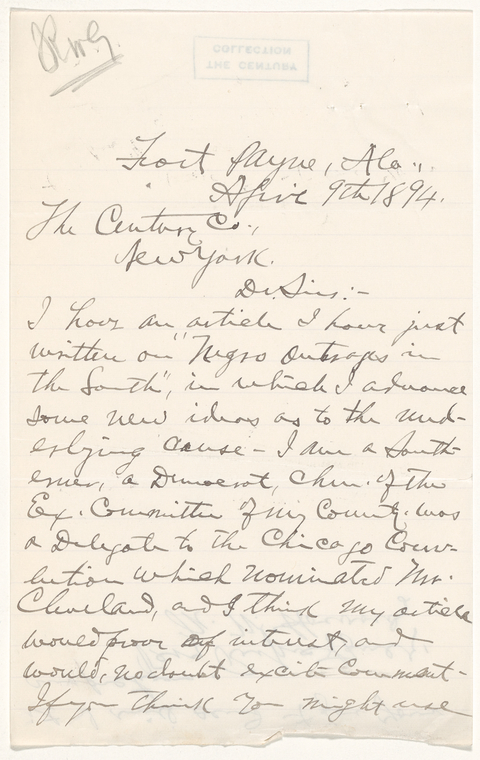 RWG
THE CENTURY
COLLECTION
Fort Payne, Ala.,
April 9th 1894.
The Century Co.,
New York.
Dr. Sirs:-
I have an article I have just
written on "Negro Outrages in
the South", in which I advance
some new ideas as to the und-
erlying cause - I am a South-
erner, a Democrat, Chm. of the
Ex. Committee of my County. was
a Delegate to the Chicago Conv-
ention which nominated Mr.
Cleveland, and I think my article
would prove of interest, and
would, no doubt excite Comment -
If you think you might use